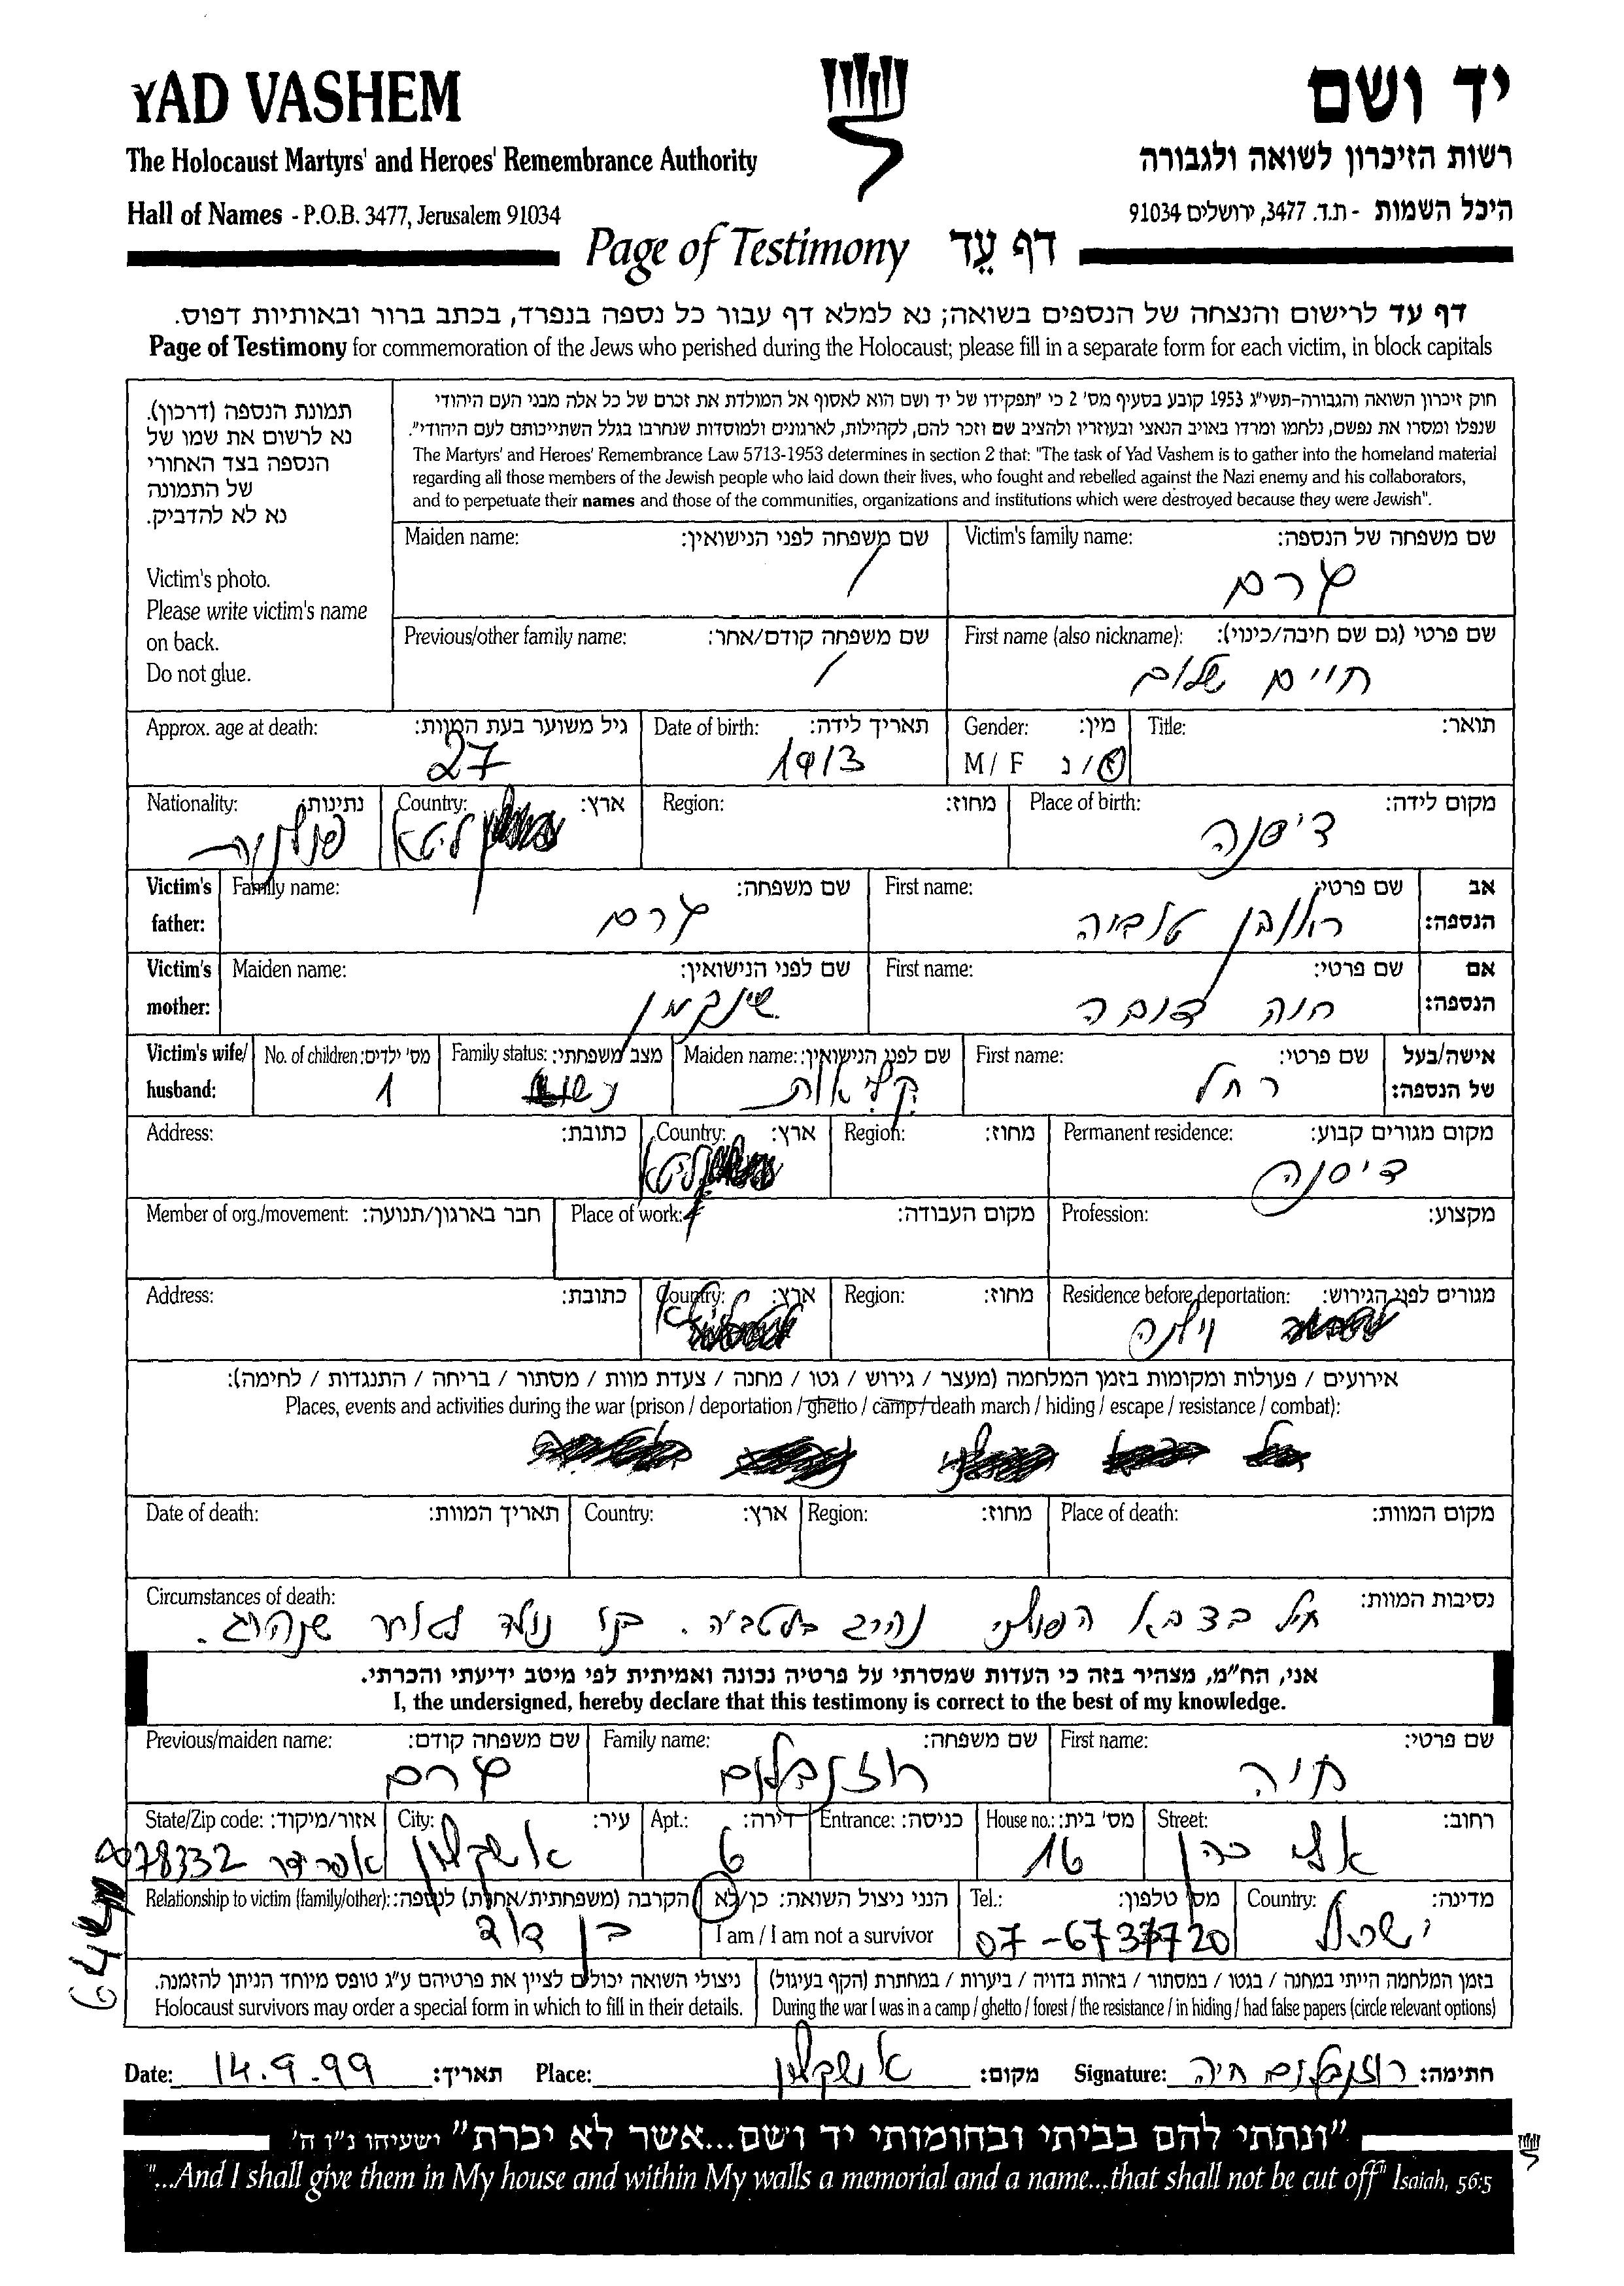 YAD VASHEM
יד ושם
The Holocaust Martyrs' and Heroes' Remembrance Authority
רשות הזיכרון לשואה ולגבורה
Hall of Names - P.O.B. 3477, Jerusalem 91034
היכל השמות - ת.ד. 3477, ירושלים 91034
Page of Testimony דף עֵד
דף עד לרישום והנצחה של הנספים בשואה; נא למלא דף עבור כל נספה בנפרד, בכתב ברור ובאותיות דפוס.
Page of Testimony for commemoration of the Jews who perished during the Holocaust; please fill in a separate form for each victim, in block capitals
תמונת הנספה (דרכון).
נא לרשום את שמו של
הנספה בצד האחורי
של התמונה
נא לא להדביק.
Victim's photo.
Please write victim's name
on back.
Do not glue.
חוק זיכרון השואה והגבורה-תשי"ג 1953 קובע בסעיף מס' 2 כי "תפקידו של יד ושם הוא לאסוף אל המולדת את זכרם של כל אלה מבני העם היהודי
שנפלו ומסרו את נפשם, נלחמו ומרדו באויב הנאצי ובעוזריו ולהציב שם וזכר להם, לקהילות, לארגונים ולמוסדות שנחרבו בגלל השתייכותם לעם היהודי".
The Martyrs' and Heroes' Remembrance Law 5713-1953 determines in section 2 that: "The task of Yad Vashem is to gather into the homeland material
regarding all those members of the Jewish people who laid down their lives, who fought and rebelled against the Nazi enemy and his collaborators,
and to perpetuate their names and those of the communities, organizations and institutions which were destroyed because they were Jewish".
שם משפחה של הנספה: Victim's family name:
שם משפחה לפני הנישואין: Maiden name:
פרם
שם פרטי (גם שם חיבה/כינוי): First name (also nickname):
שם משפחה קודם/אחר: Previous/other family name:
חיים שלום
תואר: Title:
מין: Gender:
תאריך לידה: Date of birth:
גיל משוער בעת המוות: Approx. age at death:
ז/נ M / F
1913
27
מקום לידה: Place of birth:
מחוז: Region:
ארץ: Country:
נתינות: Nationality:
דיסנה
ליטא
פולניה
אב הנספה: Victim's father:
שם פרטי: First name:
שם משפחה: Family name:
ראובן טוביה
פרם
אם הנספה: Victim's mother:
שם פרטי: First name:
שם לפני הנישואין: Maiden name:
חנה דובה
שינקמן
אישה/בעל של הנספה: Victim's wife/ husband:
שם פרטי: First name:
שם לפני הנישואין: Maiden name:
מצב משפחתי: Family status:
מס' ילדים: No. of children:
רחל
נשוי
1
מקום מגורים קבוע: Permanent residence:
מחוז: Region:
ארץ: Country:
כתובת: Address:
דיסנה
ליטא
מקצוע: Profession:
מקום העבודה: Place of work:
חבר בארגון/תנועה: Member of org./movement:
מגורים לפני הגירוש: Residence before deportation:
מחוז: Region:
ארץ: Country:
כתובת: Address:
וילנה
ליטא
אירועים / פעולות ומקומות בזמן המלחמה (מעצר / גירוש / גטו / מחנה / צעדת מוות / מסתור / בריחה / התנגדות / לחימה):
Places, events and activities during the war (prison / deportation / ghetto / camp / death march / hiding / escape / resistance / combat):
מקום המוות: Place of death:
מחוז: Region:
ארץ: Country:
תאריך המוות: Date of death:
נסיבות המוות: Circumstances of death:
חיל בצבא הפולני נהרג בלטביה. בנו נולד לאחר שנהרג.
אני, הח"מ, מצהיר בזה כי העדות שמסרתי על פרטיה נכונה ואמיתית לפי מיטב ידיעתי והכרתי.
I, the undersigned, hereby declare that this testimony is correct to the best of my knowledge.
שם פרטי: First name:
שם משפחה: Family name:
שם משפחה קודם: Previous/maiden name:
חיה
רוזנבלום
פרם
רחוב: Street:
מס' בית: House no.:
כניסה: Entrance:
דירה: Apt.:
עיר: City:
אזור/מיקוד: State/Zip code:
אלי כהן
16
6
אשקלון
אפרידר 78332
מדינה: Country:
מס' טלפון: Tel.:
הנני ניצול השואה: כן/לא
I am / I am not a survivor
הקרבה (משפחתית/אחרת) לנספה: Relationship to victim (family/other):
ישראל
07-6737720
בן דוד
בזמן המלחמה הייתי במחנה / בגטו / במסתור / בזהות בדויה / ביערות / במחתרת (הקף בעיגול)
During the war I was in a camp / ghetto / forest / the resistance / in hiding / had false papers (circle relevant options)
ניצולי השואה יכולים לציין את פרטיהם ע"ג טופס מיוחד הניתן להזמנה.
Holocaust survivors may order a special form in which to fill in their details.
חתימה: רוזנבלום חיה Signature:
מקום: אשקלון Place:
תאריך: 14.9.99 Date:
"ונתתי להם בביתי ובחומותי יד ושם...אשר לא יכרת" ישעיהו נ"ו ה'
"...And I shall give them in My house and within My walls a memorial and a name...that shall not be cut off" Isaiah, 56:5